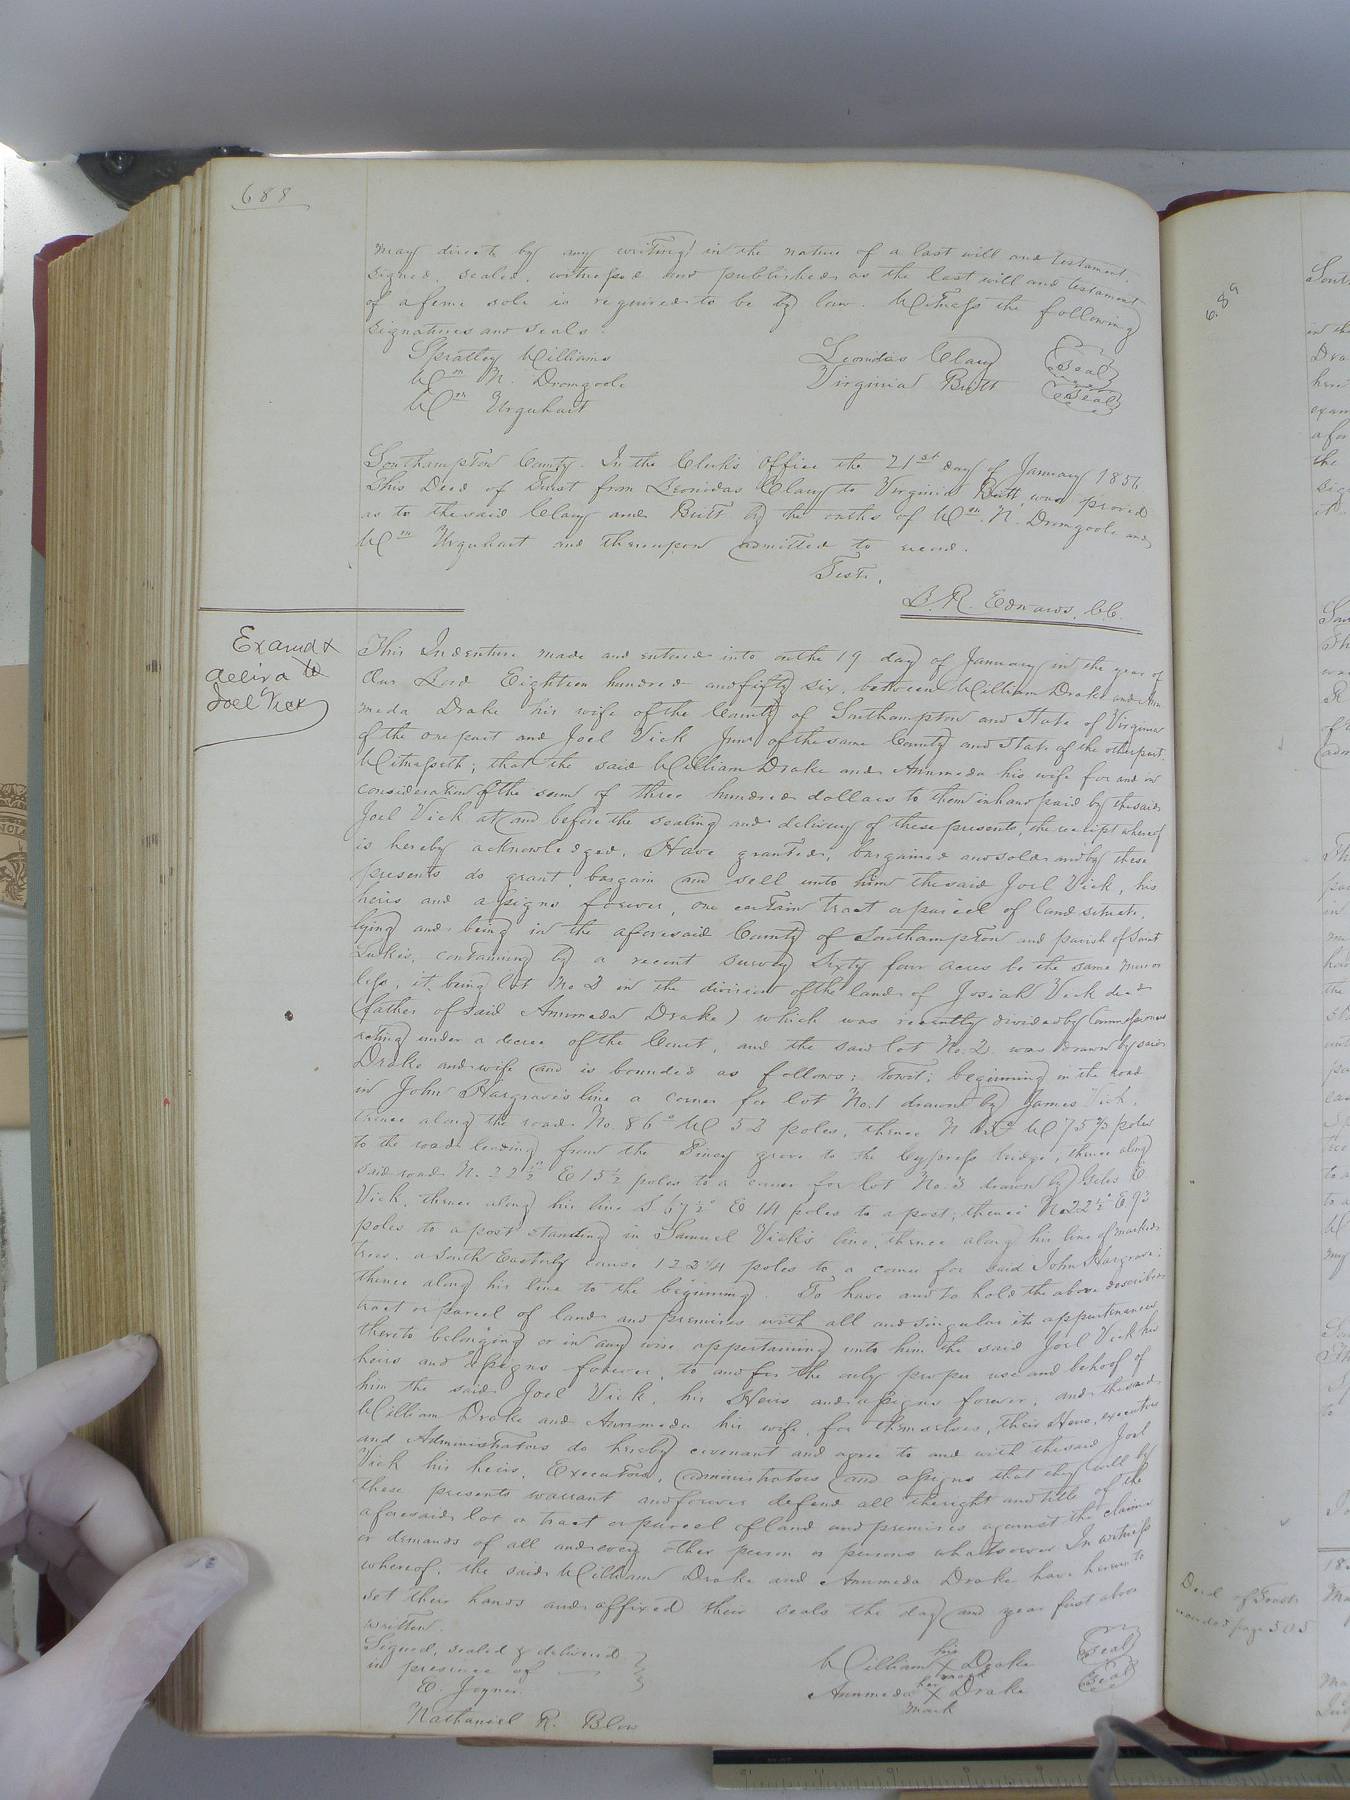 688
may direct by any writing in the nature of a last will and testament,
signed, sealed, witnessed and published as the last will and testament
of a feme sole is required to be by law. Witness the following
signatures and seals.
Spratley Williams Leonidas Clary Seal
Wm N. Dromgoole Virginia Butt Seal
Wm Urquhart
Southampton County. In the Clerk's Office the 21st day of January 1856
This Deed of Trust from Leonidas Clary to Virginia Butt, was proved
as to the said Clary and Butt by the oaths of Wm N. Dromgoole and
Wm Urquhart and thereupon admitted to record.
Test,
L. R. Edwards, C.C.
Examd &
deliv'd to
Joel Vick
This Indenture made and entered into on the 19 day of January in the year of
Our Lord Eighteen hundred and fifty six, between William Drake and Ann
meda Drake his wife of the County of Southampton and State of Virginia
of the one part and Joel Vick Junr of the same County and State of the other part.
Witnesseth; that the said William Drake and Annmeda his wife for and in
consideration of the sum of three hundred dollars to them in hand paid by the said
Joel Vick at and before the sealing and delivery of these presents, the receipt whereof
is hereby acknowledged, Have granted, bargained and sold and by these
presents do grant, bargain and sell unto him the said Joel Vick, his
heirs and assigns forever, one certain tract or parcel of land situate,
lying and being in the aforesaid County of Southampton and parish of Saint
Lukes, containing by a recent survey Sixty four acres be the same more or
less, it being lot No 2 in the division of the land of Josiah Vick decd
(father of said Annmeda Drake) which was recently divided by Commissioners
acting under a decree of the Court, and the said lot No. 2 was drawn by said
Drake and wife and is bounded as follows: towit; beginning in the road
in John Hargraves line a corner for lot No. 1 drawn by James Vick,
thence along the road No. 86° W 52 poles, thence N W 75 poles
to the road leading from the Piney grove to the Cypress bridge, thence along
said road N. 22½° E 15½ poles to a corner for lot No. 3 drawn by Giles E
Vick, thence along his line S. 67½° E 14 poles to a post; thence N 22½° E 93
poles to a post standing in Samuel Vick's line, thence along his line of marked
trees, a South Easterly course 122¼ poles to a corner for said John Hargrave;
thence along his line to the beginning. To have and to hold the above described
tract or parcel of land and premises with all and singular its appurtenances
thereto belonging or in any wise appertaining unto him the said Joel Vick his
heirs and assigns forever, to and for the only proper use and behoof of
him the said Joel Vick, his Heirs and assigns forever, and the said
William Drake and Annmeda his wife, for themselves, their Heirs, executors
and Administrators do hereby covenant and agree to and with the said Joel
Vick his heirs, Executors, administrators and assigns that they will by
these presents warrant and forever defend all the right and title of the
aforesaid lot or tract or parcel of land and premises against the claims
or demands of all and every other person or persons whatsoever In witness
whereof, the said William Drake and Annmeda Drake have hereunto
set their hands and affixed their seals the day and year first above
written.
Signed, sealed & delivered
in presence of
E. Joyner
Nathaniel R. Blow
his
William X Drake Seal
mark
her
Annmeda X Drake Seal
mark
Deed of Trust
recorded page 505